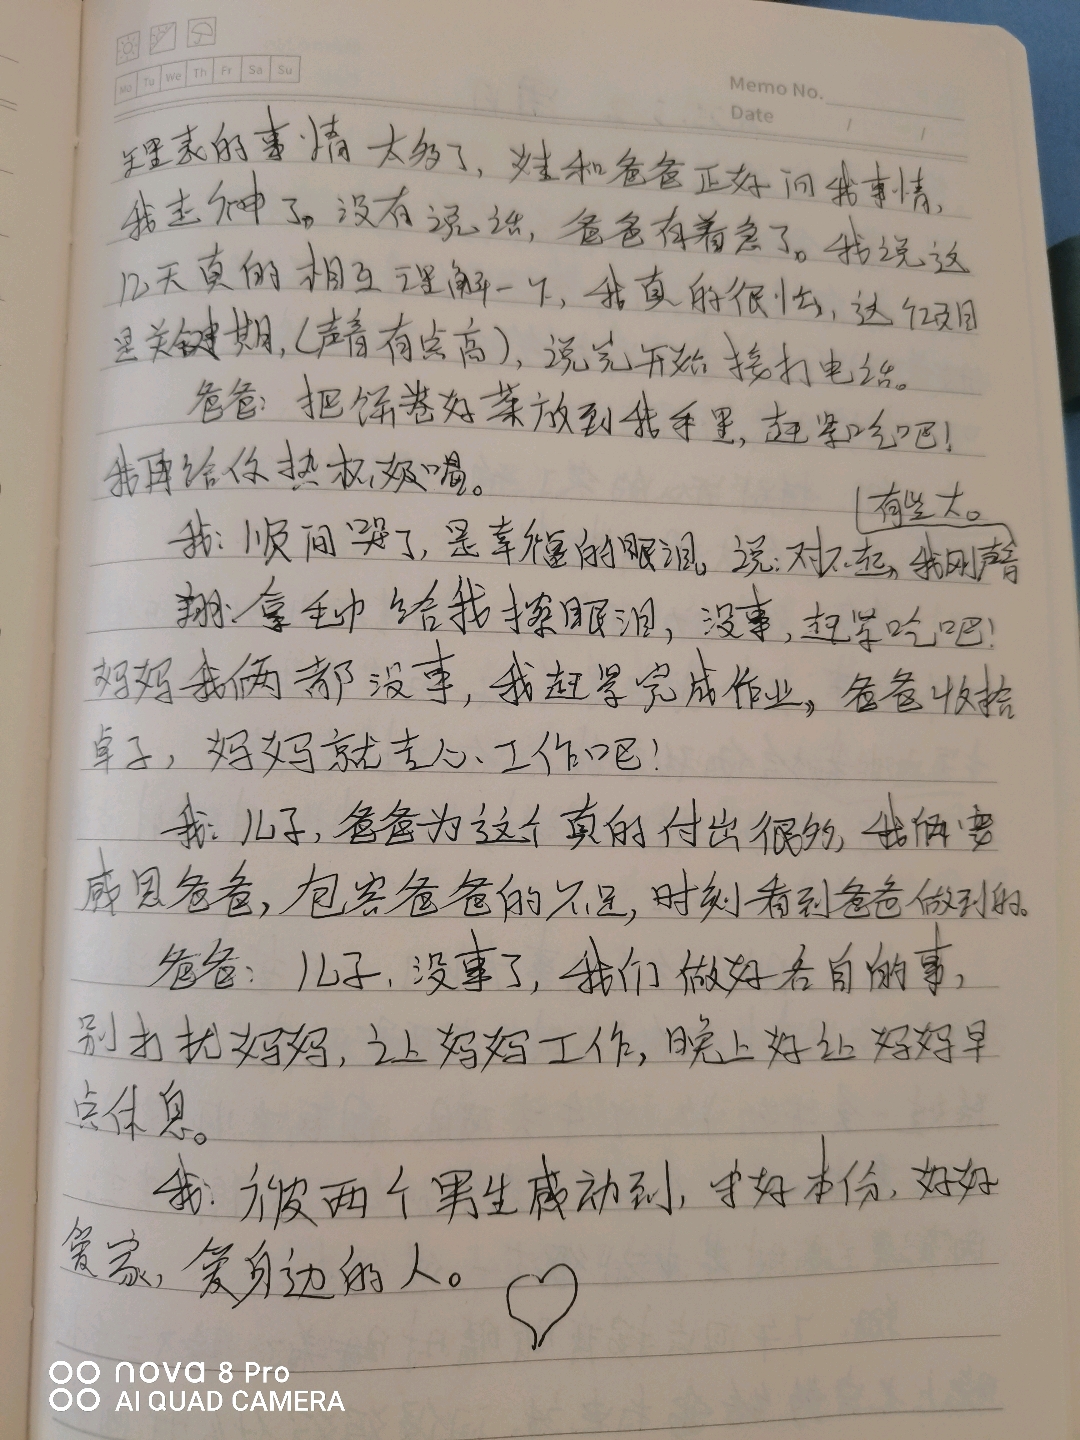 Mo Tu We Th Fr Sa Su
Memo No.
Date / /
的事情太多了,娃和爸爸正好问我事情,
我走神了。没有说话,爸爸有着急了。我说这
几天真的相互理解一下,我真的很忙,这个项目
是关键期,(声音有点高),说完开始接打电话。
爸爸:把饼卷好菜放到我手里,赶紧吃吧!
我再给你热杯奶喝。
有些大。
我:顺间哭了,是幸福的眼泪。说:对不起,我刚声音
翔:拿毛巾给我擦眼泪,没事,赶紧吃吧!
妈妈我俩都没事,我赶紧完成作业,爸爸收拾
卓子,妈妈就专心工作吧!
我:儿子,爸爸为这个真的付出很多,我俩要
感恩爸爸,包容爸爸的不足,时刻看到爸爸做到的。
爸爸:儿子,没事了,我们做好各自的事,
别打扰妈妈,让妈妈工作,晚上好让妈妈早
点休息。
我:被两个男生感动到,守好本份,好好
爱家,爱身边的人。
nova 8 Pro
AI QUAD CAMERA